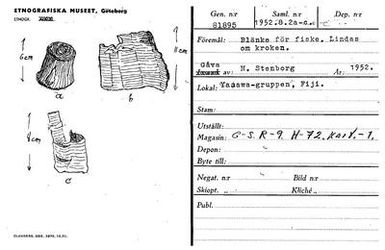 ETNOGRAFISKA MUSEET, Göteborg
ETNOGR.
6cm
11cm
a
b
9cm
c
Gen. nr
Saml. nr
Dep. nr
81895
1952.8.2a-c
Föremål: Blänke för fiske. Lindas
om kroken.
Gåva
av M. Stenborg År: 1952.
Lokal: Yasawa-gruppen, Fiji.
Stam:
Utställt:
Magasin: G-S. R-9. H-72.
Depon:
Byte till:
Negat. nr
Bild nr
Skiopt.
Kliché
Publ.